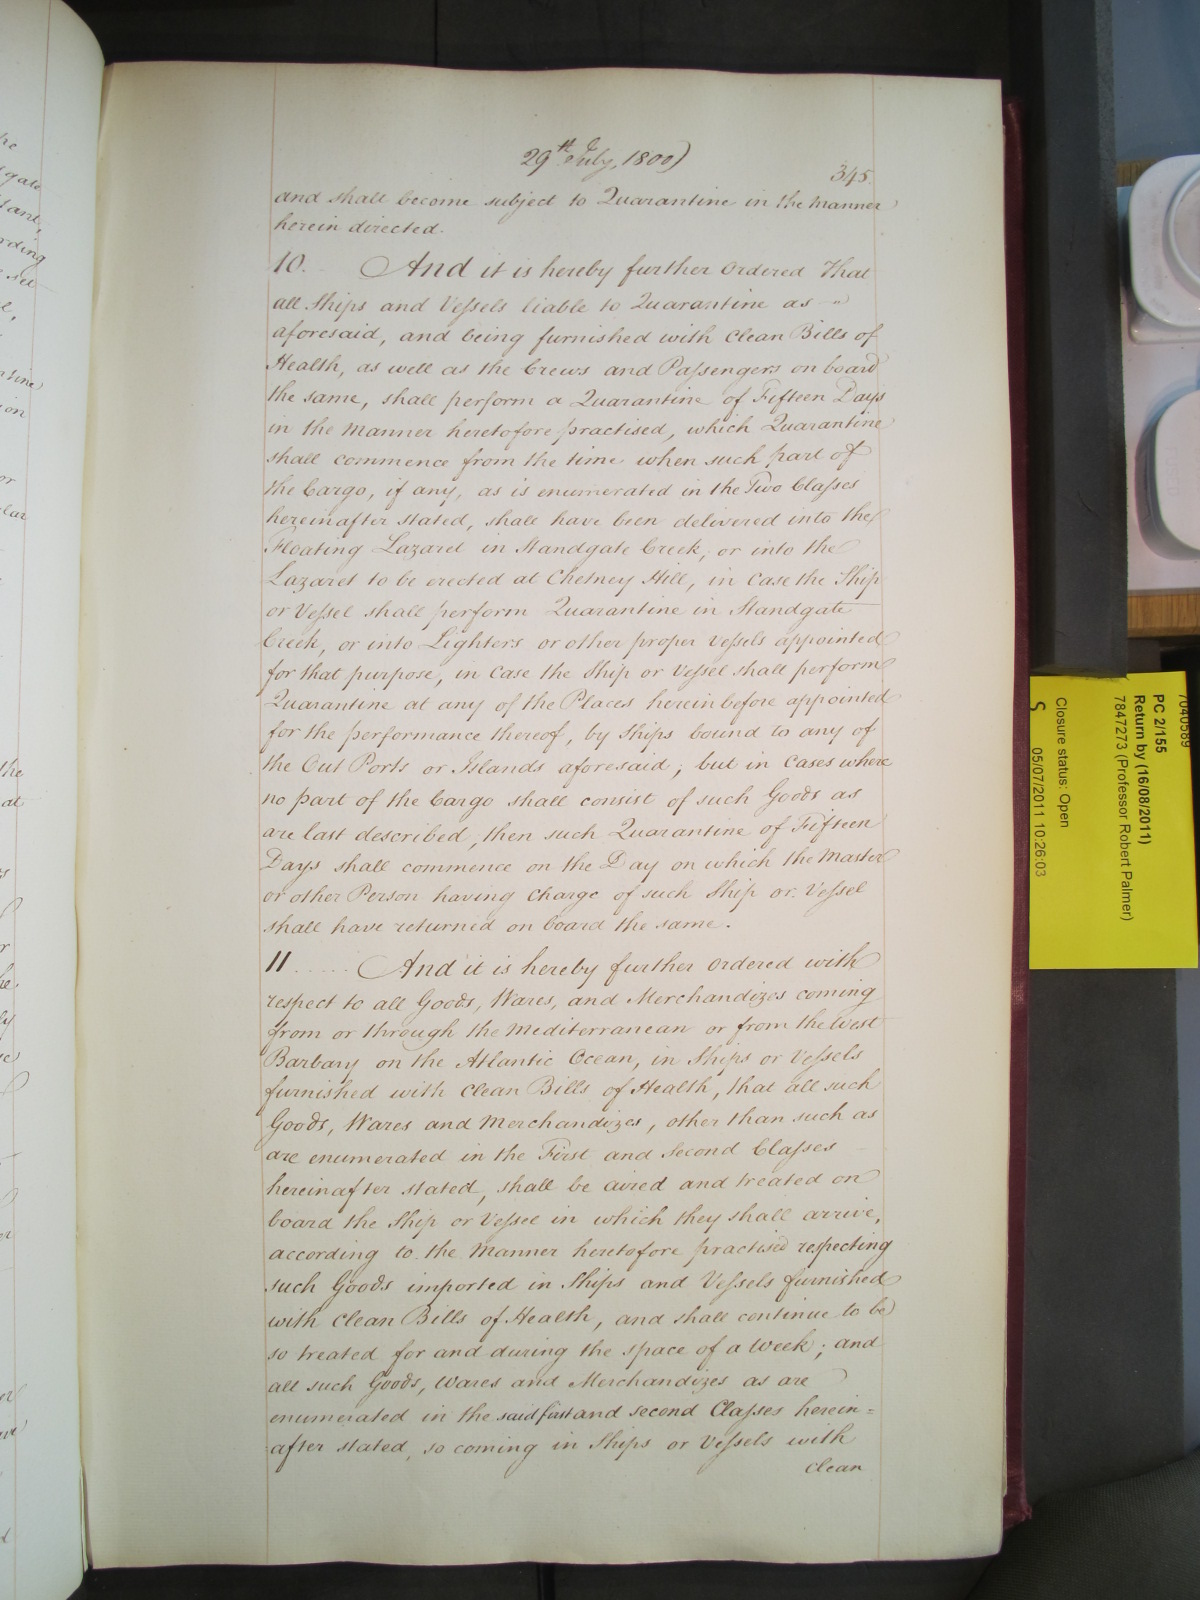 29th July, 1800)
345.
and shall become subject to Quarantine in the Manner
herein directed.
10. And it is hereby further Ordered That
all Ships and Vessels liable to Quarantine as
aforesaid, and being furnished with Clean Bills of
Health, as well as the Crews and Passengers on board
the same, shall perform a Quarantine of Fifteen Days
in the Manner heretofore practised, which Quarantine
shall commence from the time when such part of
the Cargo, if any, as is enumerated in the Two Classes
hereinafter stated, shall have been delivered into the
Floating Lazaret in Standgate Creek, or into the
Lazaret to be erected at Chetney Hill, in Case the Ship
or Vessel shall perform Quarantine in Standgate
Creek, or into Lighters or other proper Vessels appointed
for that purpose, in Case the Ship or Vessel shall perform
Quarantine at any of the Places herein before appointed
for the performance thereof, by Ships bound to any of
the Out Ports or Islands aforesaid; but in Cases where
no part of the Cargo shall consist of such Goods as
are last described, then such Quarantine of Fifteen
Days shall commence on the Day on which the Master
or other Person having Charge of such Ship or Vessel
shall have returned on board the same.
11 ..... And it is hereby further Ordered with
respect to all Goods, Wares, and Merchandizes coming
from or through the Mediterranean or from the West
Barbary on the Atlantic Ocean, in Ships or Vessels
furnished with Clean Bills of Health, that all such
Goods, Wares and Merchandizes, other than such as
are enumerated in the First and Second Classes
hereinafter stated, shall be aired and treated on
board the Ship or Vessel in which they shall arrive,
according to the Manner heretofore practised respecting
such Goods imported in Ships and Vessels furnished
with Clean Bills of Health, and shall continue to be
so treated for and during the space of a Week; and
all such Goods, Wares and Merchandizes as are
enumerated in the said first and second Classes herein=
after stated, so coming in Ships or Vessels with
Clean
7040589
PC 2/155
Return by (16/08/2011)
7847273 (Professor Robert Palmer)
Closure status: Open
S 05/07/2011 10:26:03